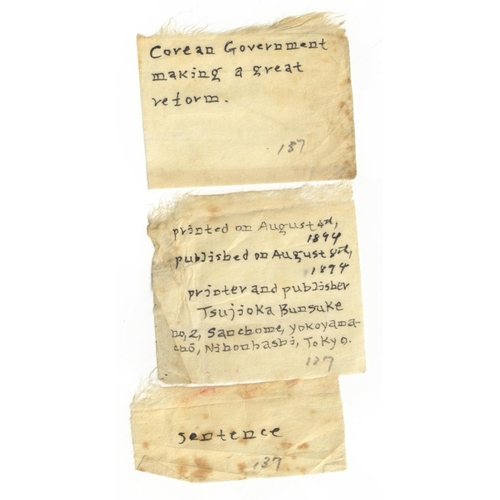 Corean Government
making a great
reform.
137
printed on August 4th,
1894
published on August 8th,
1894
printer and publisher
Tsujioka Bunsuke
no, 2, Sanchome, yokoyama-
chō, Nihonbashi, Tokyo.
137
sentence
137